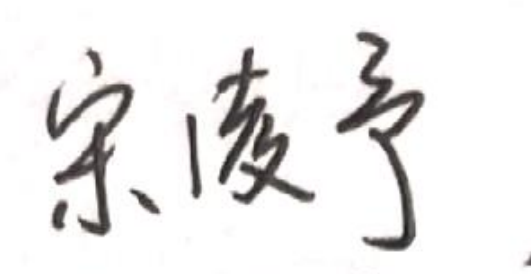 宋凌予